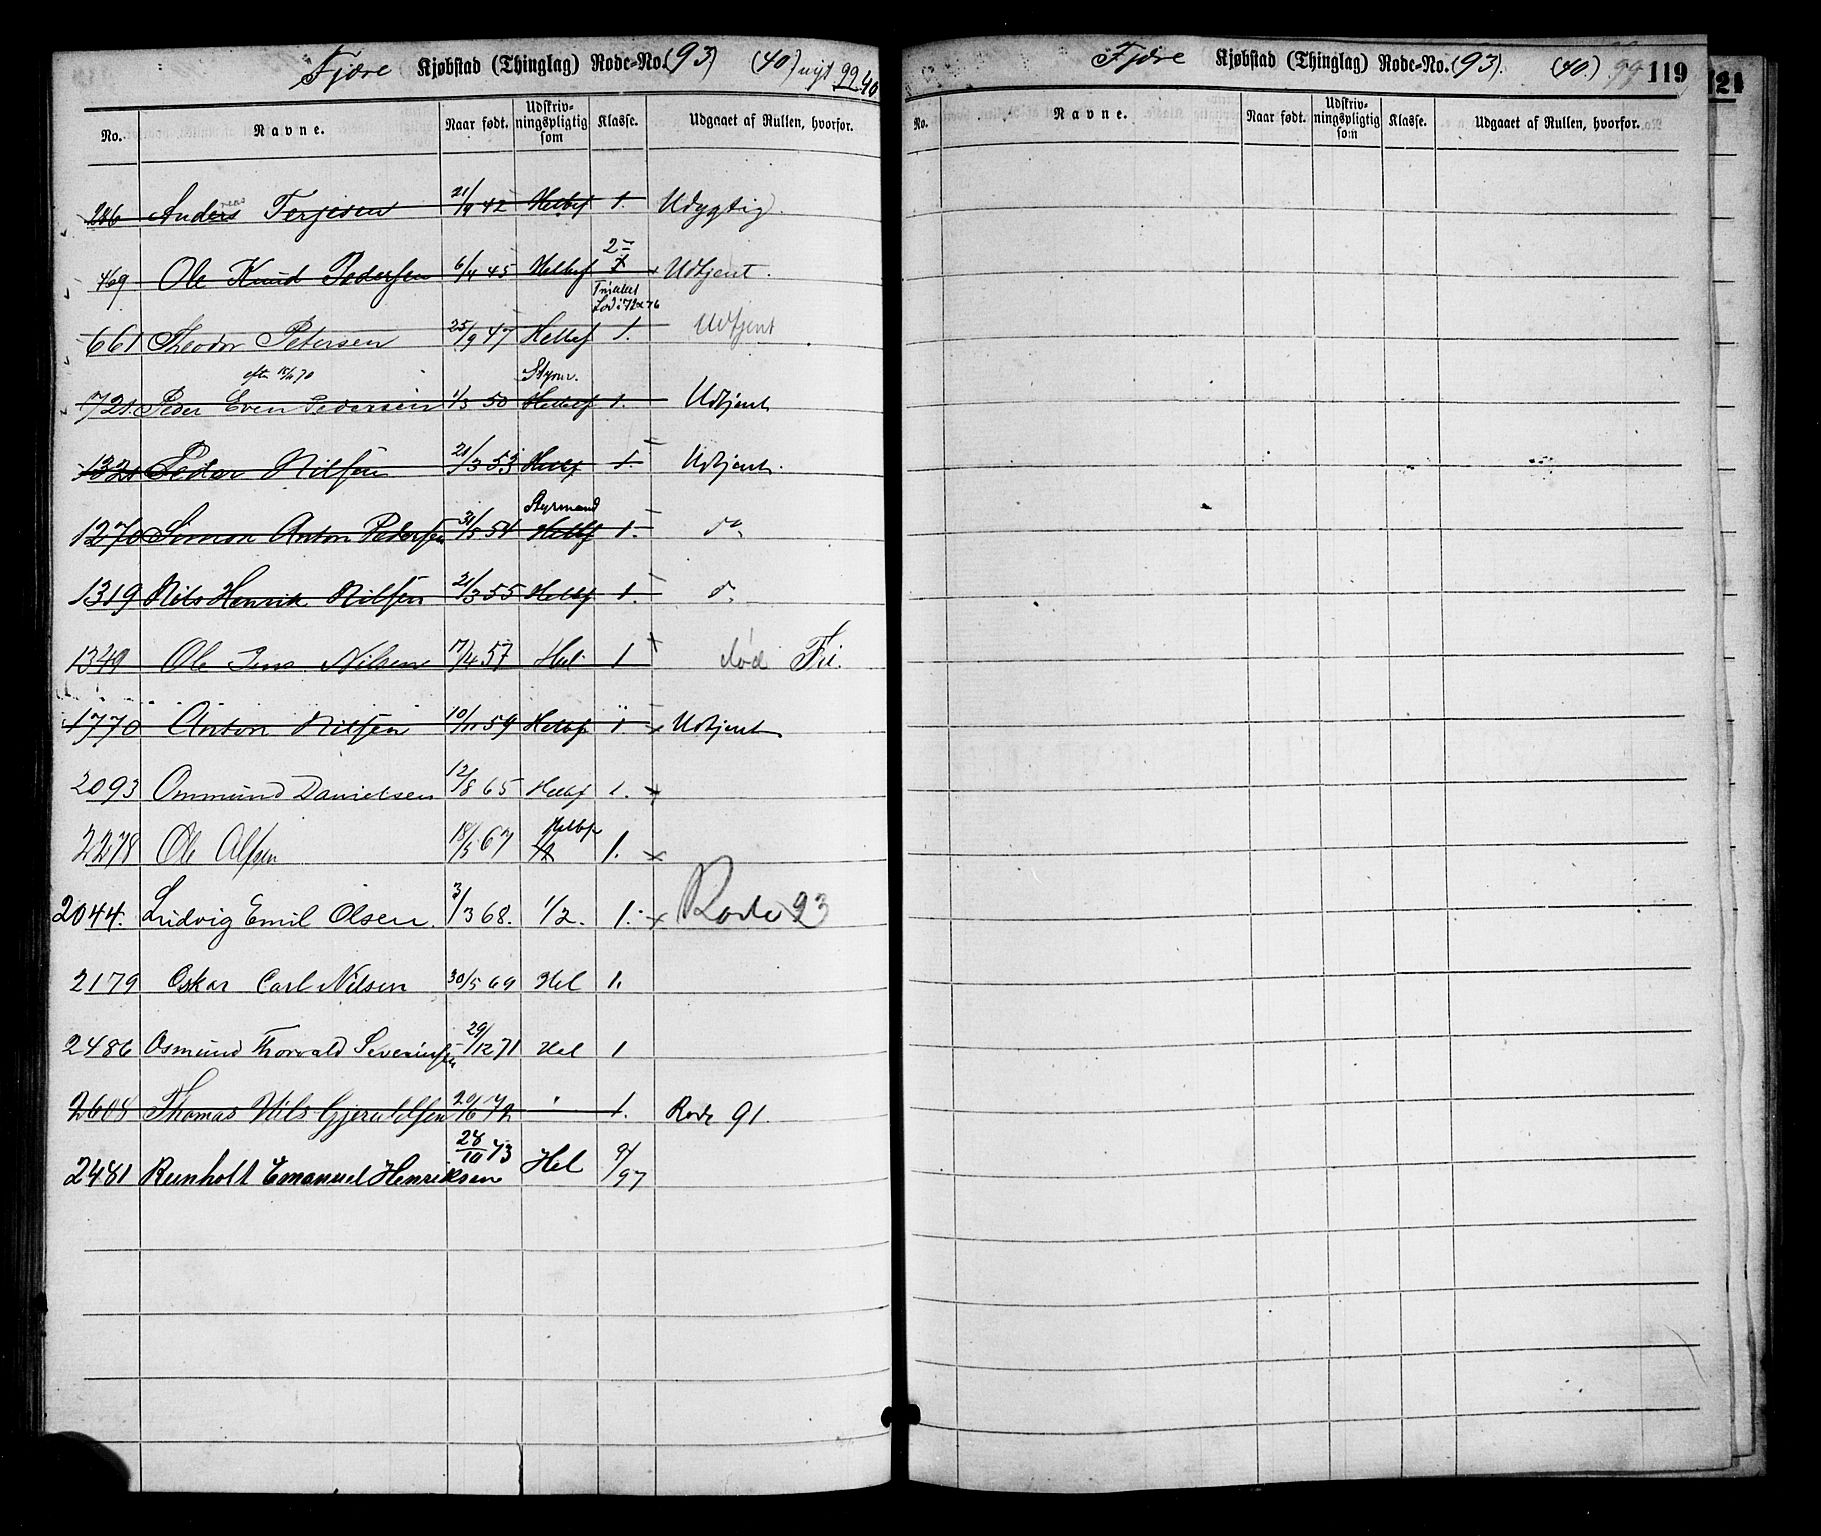 Fjære Kjøbstad (Thinglag) Rode-No. (93) (40) nyt 99 40
No. Navne. Naar født. Udskriv-ningspligtig som Klasse. Udgaaet af Rullen, hvorfor.
286 Anders reas Terjesen 21/9 42 Helbef 1. Udygtig.
2
469 Ole Knud Pedersen 6/4 45 Helbef 1 x Udtjent.
661 Theodor Petersen 25/9 47 Helbef 1. Udtjent
Styrm.
721. Peder Even Pedersen 1/3 50 Helbef 1. Udtjent
1321 Peder Nilsen 21/3 53 Helbf 1. Udtjent.
Styrmand
1270 Simon Anton Pedersen 31/5 54 Helbf 1. do
1319 Nils Henrik Nilsen 21/3 55 Helbf 1. d.
1349 Ole Jens Nilsen 17/4 57 Hel 1 død Fri.
1770 Anton Nilsen 10/11 59 Helbf 1 x Udtjent
2093 Ommund Danielsen 12/8 65 Helbf 1. x
Helbf
2278 Ole Olsen 18/5 67 1/2 1. x
2044. Ludvig Emil Olsen. 3/3 68. 1/2. 1. x Rode 93
2179 Oskar Carl Nilsen 30/5 69 Hel 1.
2486 Osmund Thorvald Severinsen 29/12 71 Hel 1
2608 Thomas Nils Gjeruldsen 29/6 72 " 1. Rode 91.
2481 Reinholt Emanuel Henriksen 28/10 73 Hel 9/97
Fjære Kjøbstad (Thinglag) Rode-No. (93). (40.) 99 119
No. Navne. Naar født. Udskriv-ningspligtig som Klasse. Udgaaet af Rullen, hvorfor.
121